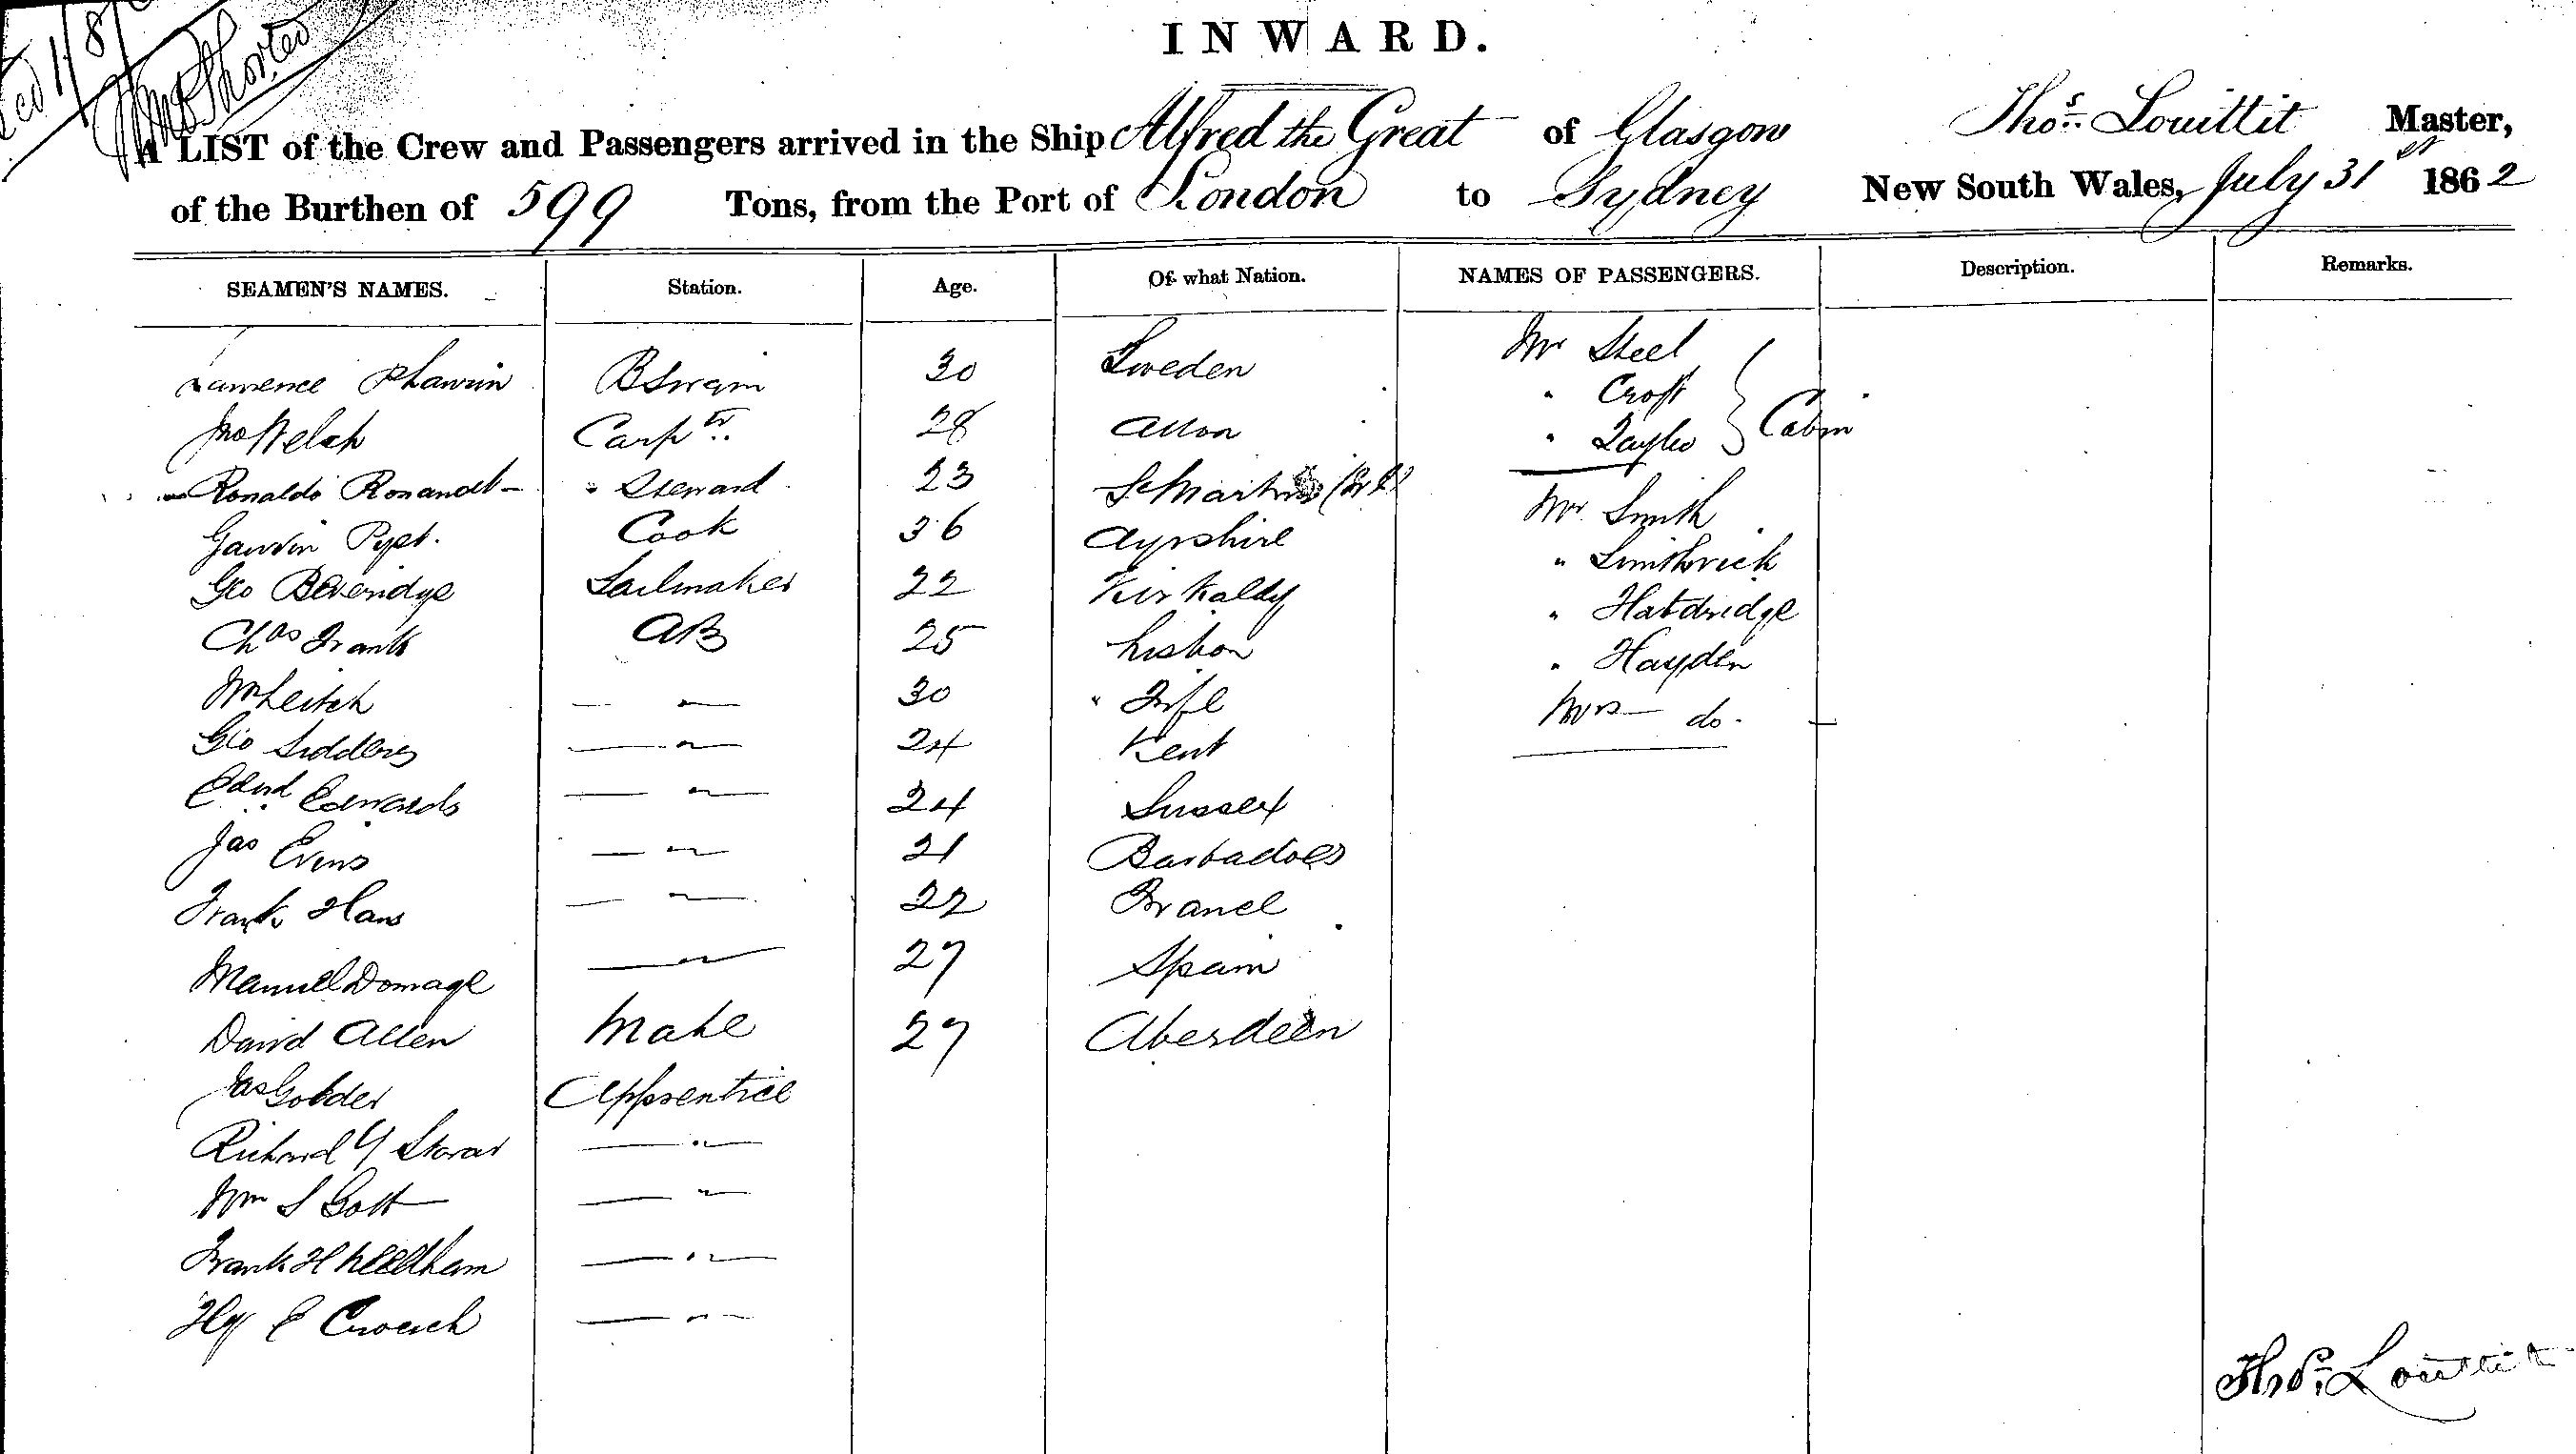 INWARD.
A LIST of the Crew and Passengers arrived in the Ship Alfred the Great of Glasgow Thos. Louittit Master,
of the Burthen of 599 Tons, from the Port of London to Sydney New South Wales, July 31st 1862
SEAMEN'S NAMES. Station. Age. Of what Nation. NAMES OF PASSENGERS. Description. Remarks.
Lawrence BSwain 30 Sweden Mr Steel
" Croft
Jno Welch Carptr. 28 Alloa " Taylor Cabin
Ronaldo " Steward 23 St Martins
Mr Smith
Gawin Cook 36 Ayrshire
" Smithwick
Geo Beveridge Sailmaker 22 Kirkaldy " Hatdridge
Chas Frank AB 25 Lisbon " Hayden
Wm Leitch — " — 30 " Fife Mrs — do.
Geo Siddlers — " — 24 Kent
Edwd. Edwards — " — 24 Sussex
Jas Evens — " — 21 Barbadoes
Frank Hans — " — 22 France
Manuel Domage — " — 27 Spain
David Allen Mate 27 Aberdeen
Jas Golder Apprentice
Richard Y — " —
Wm S Gott — " —
Frank H Needham — " —
Hy E Crouch — " —
Thos. Louittit